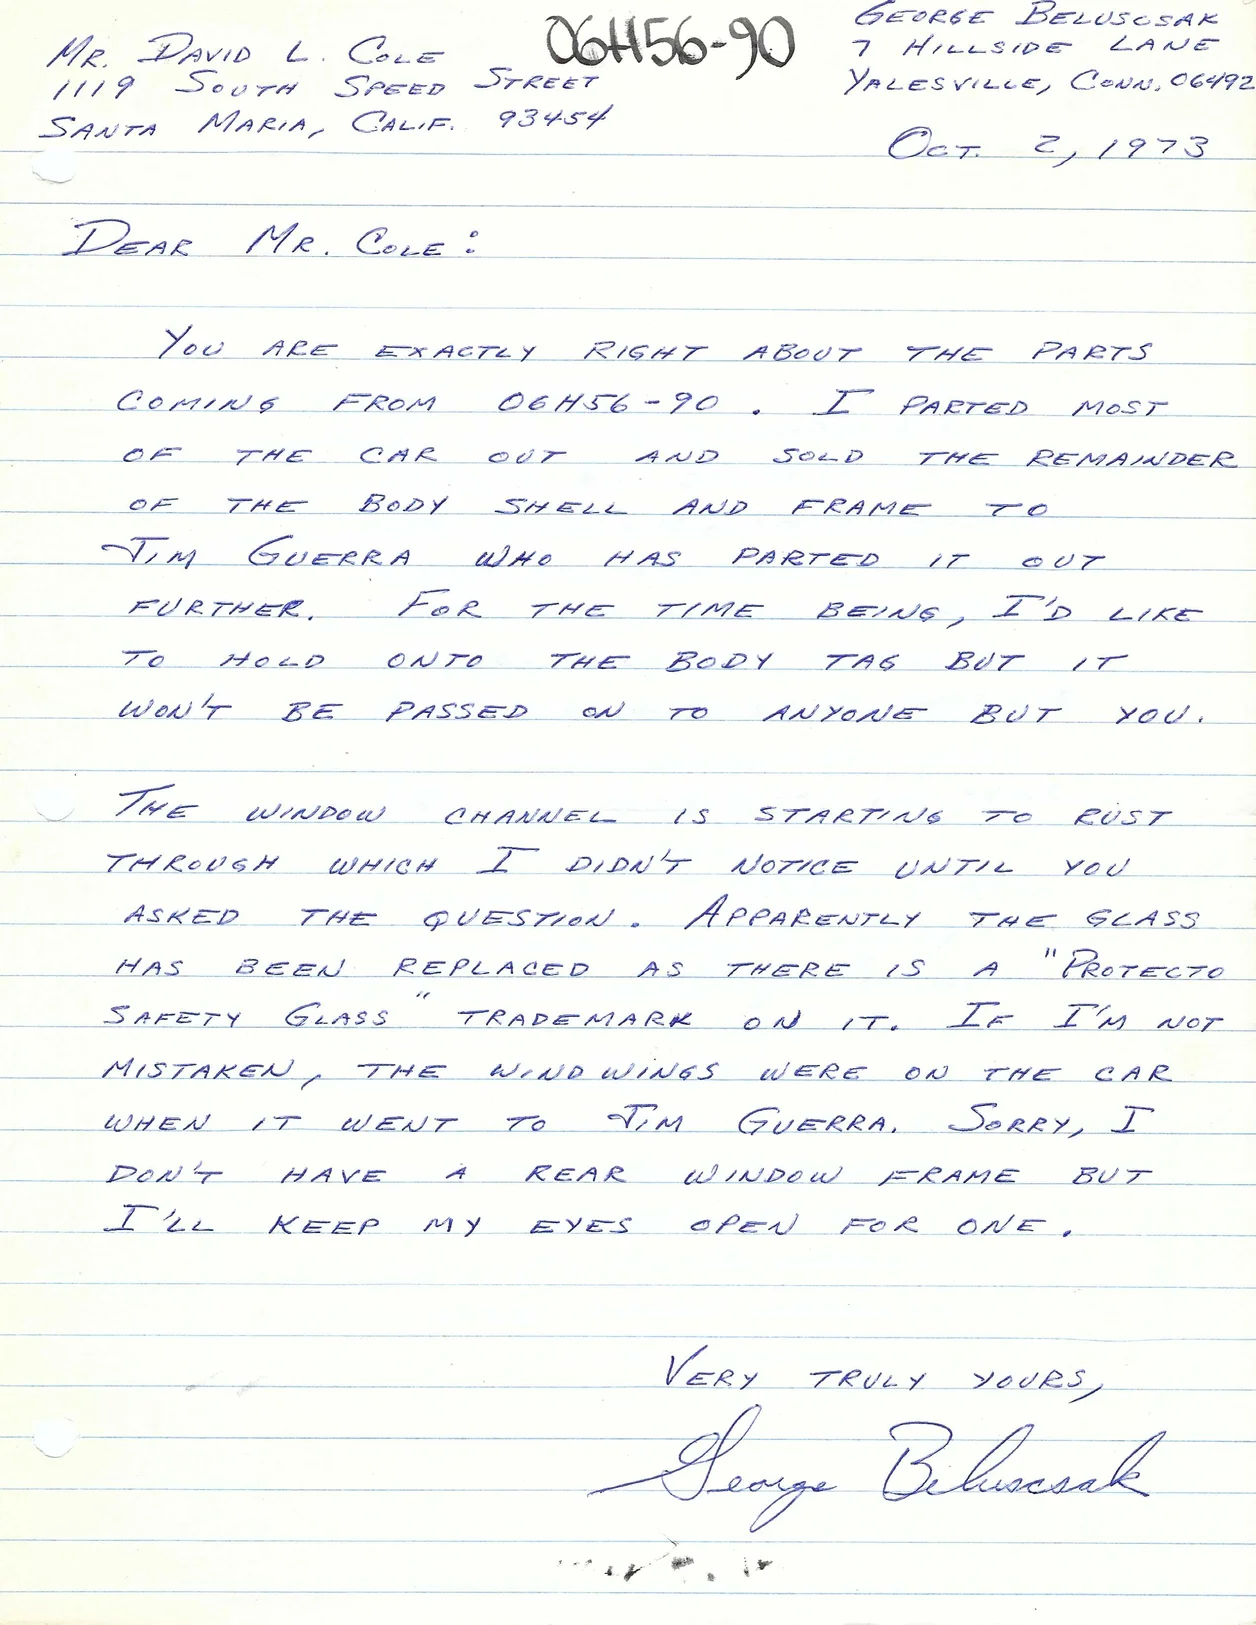 06H56-90
GEORGE BELUSCSAK
7 HILLSIDE LANE
YALESVILLE, CONN. 06492
MR. DAVID L. COLE
1119 SOUTH SPEED STREET
SANTA MARIA, CALIF. 93454
OCT. 2, 1973
DEAR MR. COLE:
YOU ARE EXACTLY RIGHT ABOUT THE PARTS
COMING FROM 06H56-90. I PARTED MOST
OF THE CAR OUT AND SOLD THE REMAINDER
OF THE BODY SHELL AND FRAME TO
JIM GUERRA WHO HAS PARTED IT OUT
FURTHER. FOR THE TIME BEING, I'D LIKE
TO HOLD ONTO THE BODY TAG BUT IT
WON'T BE PASSED ON TO ANYONE BUT YOU.
THE WINDOW CHANNEL IS STARTING TO RUST
THROUGH WHICH I DIDN'T NOTICE UNTIL YOU
ASKED THE QUESTION. APPARENTLY THE GLASS
HAS BEEN REPLACED AS THERE IS A "PROTECTO
SAFETY GLASS" TRADEMARK ON IT. IF I'M NOT
MISTAKEN, THE WIND WINGS WERE ON THE CAR
WHEN IT WENT TO JIM GUERRA. SORRY, I
DON'T HAVE A REAR WINDOW FRAME BUT
I'LL KEEP MY EYES OPEN FOR ONE.
VERY TRULY YOURS,
George Beluscsak